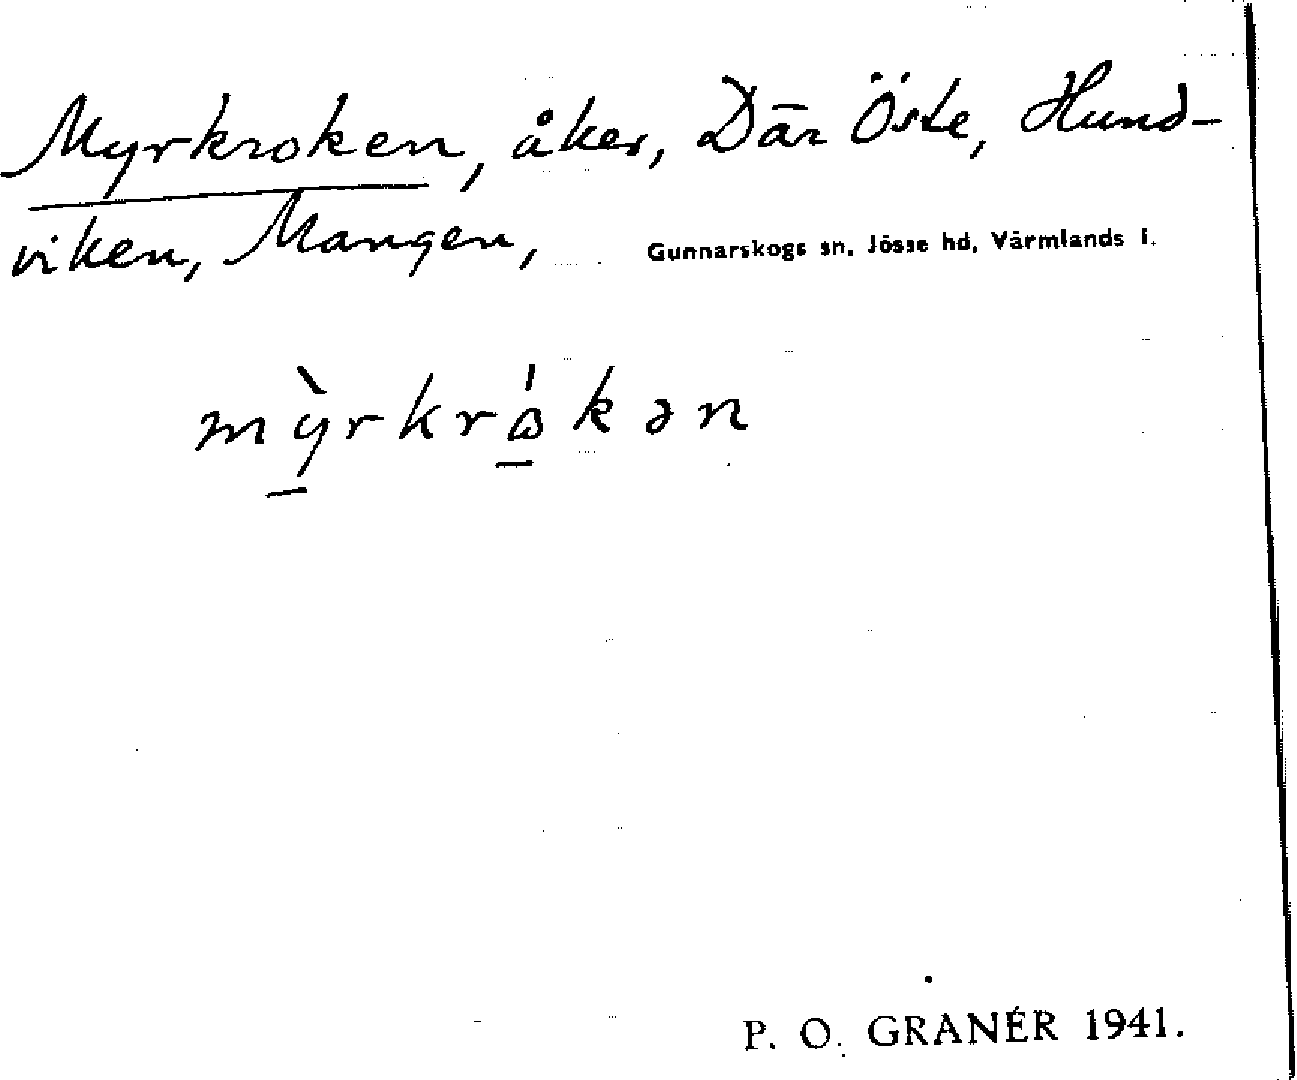 Myrkroken, åker, Där Öste, Hund-
viken, Mangen, Gunnarskogs sn, Jösse hd, Värmlands l.
mỳ̠rkrɷ̠́kən
P. O. GRANÉR 1941.